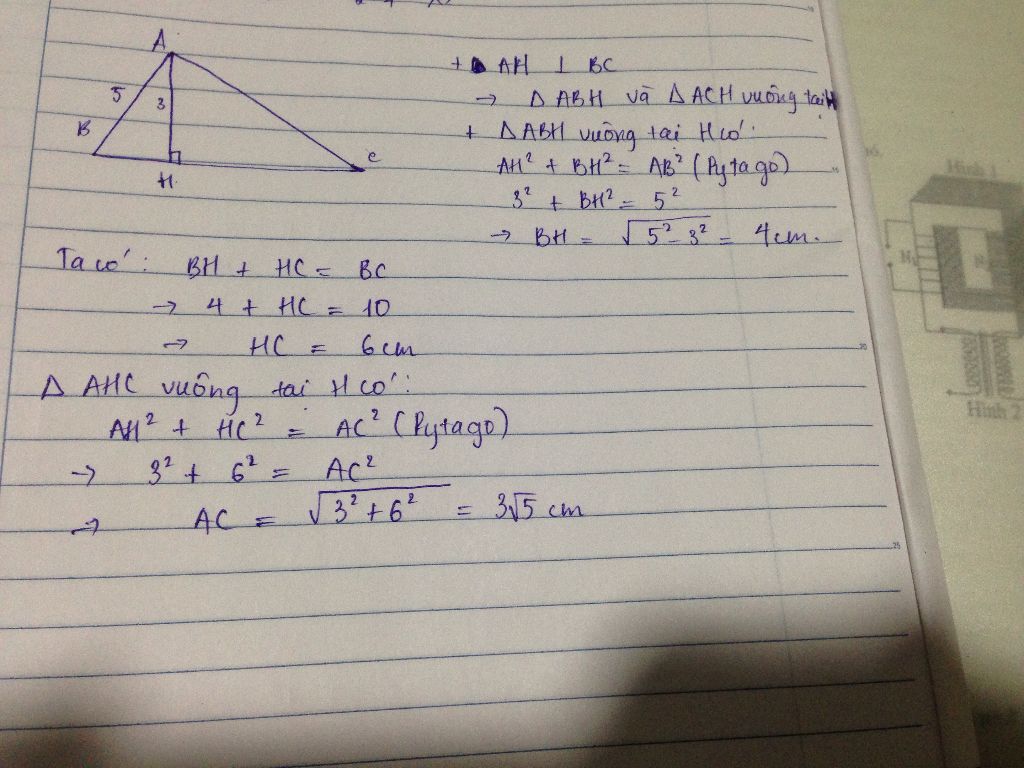 A
5
3
B
C
H
+ AH ⊥ BC
→ Δ ABH và Δ ACH vuông tại H
+ Δ ABH vuông tại H có:
AH² + BH² = AB² (Pytago)
3² + BH² = 5²
→ BH = √5² - 3² = 4cm.
Ta có: BH + HC = BC
→ 4 + HC = 10
→ HC = 6cm
Δ AHC vuông tại H có:
AH² + HC² = AC² (Pytago)
→ 3² + 6² = AC²
→ AC = √3² + 6² = 3√5 cm
Hình 1
Hình 2
20
25